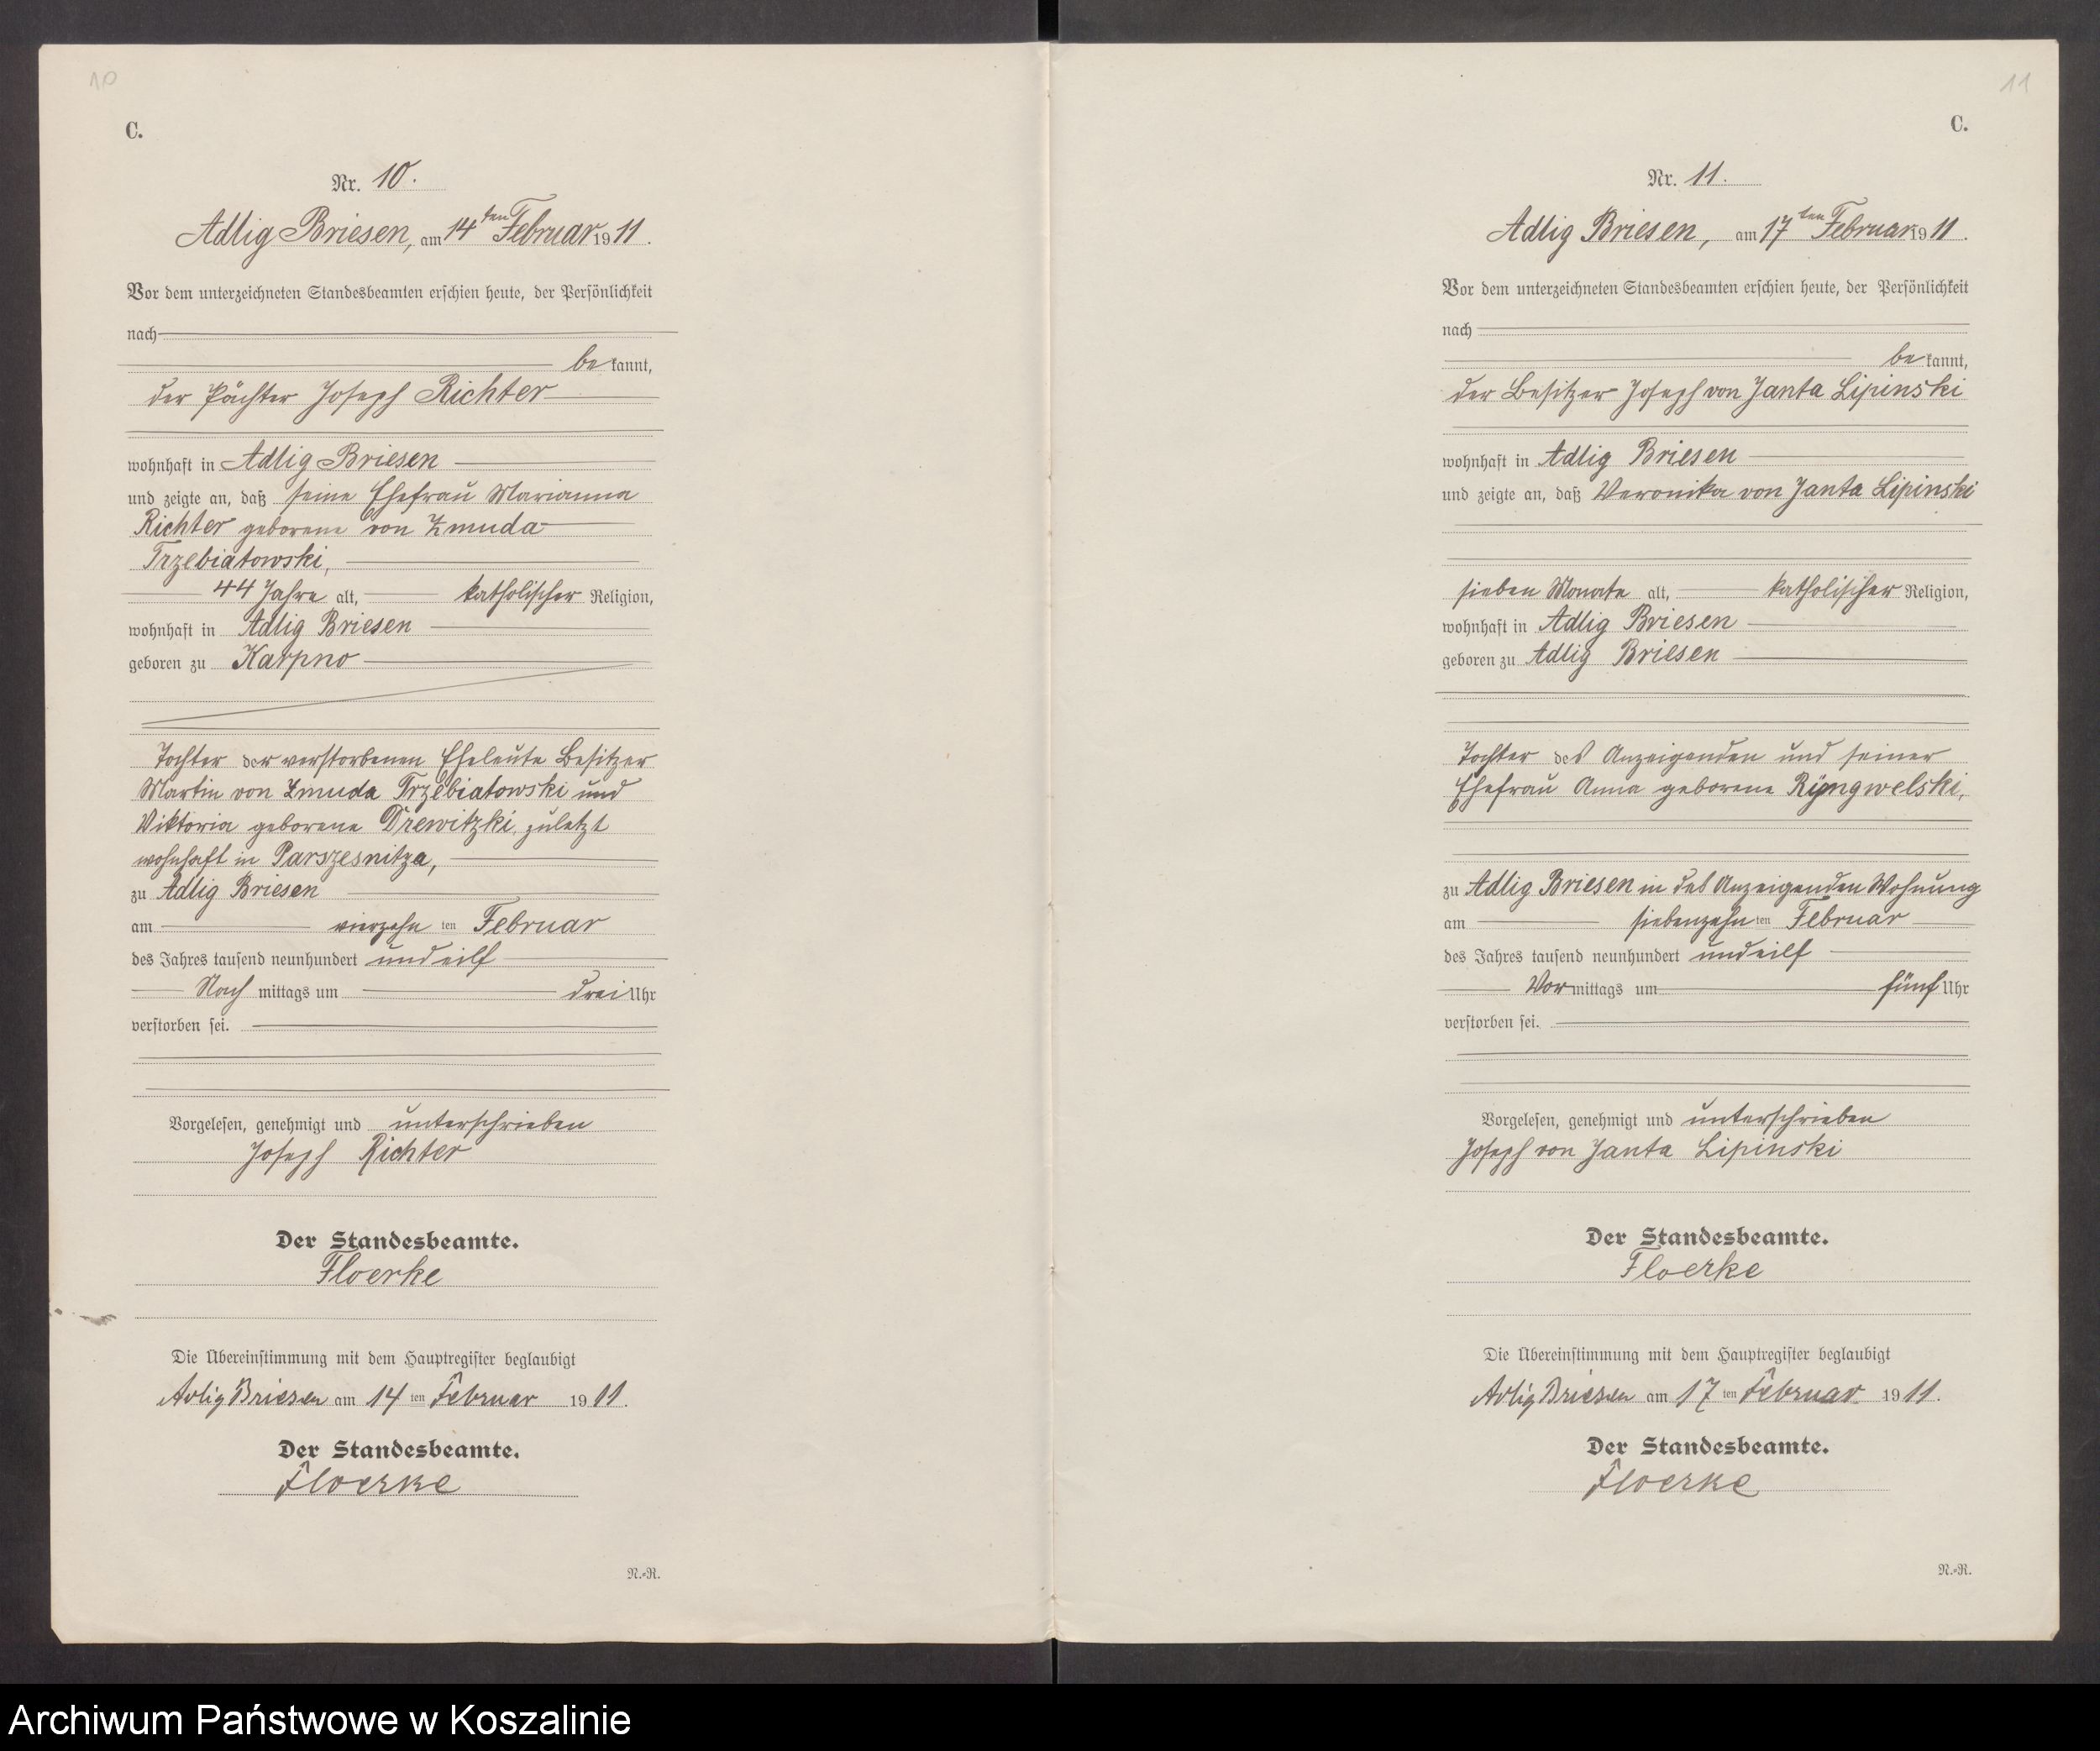 10
C.
Nr. 10.
Adlig Briesen, am 14ten Februar 1911.
Vor dem unterzeichneten Standesbeamten erschien heute, der Persönlichkeit
nach
bekannt,
der Pächter Joseph Richter
wohnhaft in Adlig Briesen
und zeigte an, daß seine Ehefrau Marianna
Richter geborene von Zmuda
Trzebiatowski,
44 Jahre alt, katholischer Religion,
wohnhaft in Adlig Briesen
geboren zu Karpno
Tochter der verstorbenen Eheleute Besitzer
Martin von Zmuda Trzebiatowski und
Viktoria geborene Drewitzki, zuletzt
wohnhaft in Parszesnitza,
zu Adlig Briesen
am vierzehnten Februar
des Jahres tausend neunhundert und eilf
Nachmittags um drei Uhr
verstorben sei.
Vorgelesen, genehmigt und unterschrieben
Joseph Richter
Der Standesbeamte.
Floerke
Die Übereinstimmung mit dem Hauptregister beglaubigt
Adlig Briesen am 14ten Februar 1911.
Der Standesbeamte.
Floerke
N.-R.
11
C.
Nr. 11.
Adlig Briesen, am 17ten Februar 1911.
Vor dem unterzeichneten Standesbeamten erschien heute, der Persönlichkeit
nach
bekannt,
der Besitzer Joseph von Janta Lipinski
wohnhaft in Adlig Briesen
und zeigte an, daß Veronika von Janta Lipinski
sieben Monate alt, katholischer Religion,
wohnhaft in Adlig Briesen
geboren zu Adlig Briesen
Tochter des Anzeigenden und seiner
Ehefrau Anna geborene Ryngwelski,
zu Adlig Briesen in des Anzeigenden Wohnung
am siebenzehnten Februar
des Jahres tausend neunhundert und eilf
Vormittags um fünf Uhr
verstorben sei.
Vorgelesen, genehmigt und unterschrieben
Joseph von Janta Lipinski
Der Standesbeamte.
Floerke
Die Übereinstimmung mit dem Hauptregister beglaubigt
Adlig Briesen am 17ten Februar 1911.
Der Standesbeamte.
Floerke
N.-R.
Archiwum Państwowe w Koszalinie